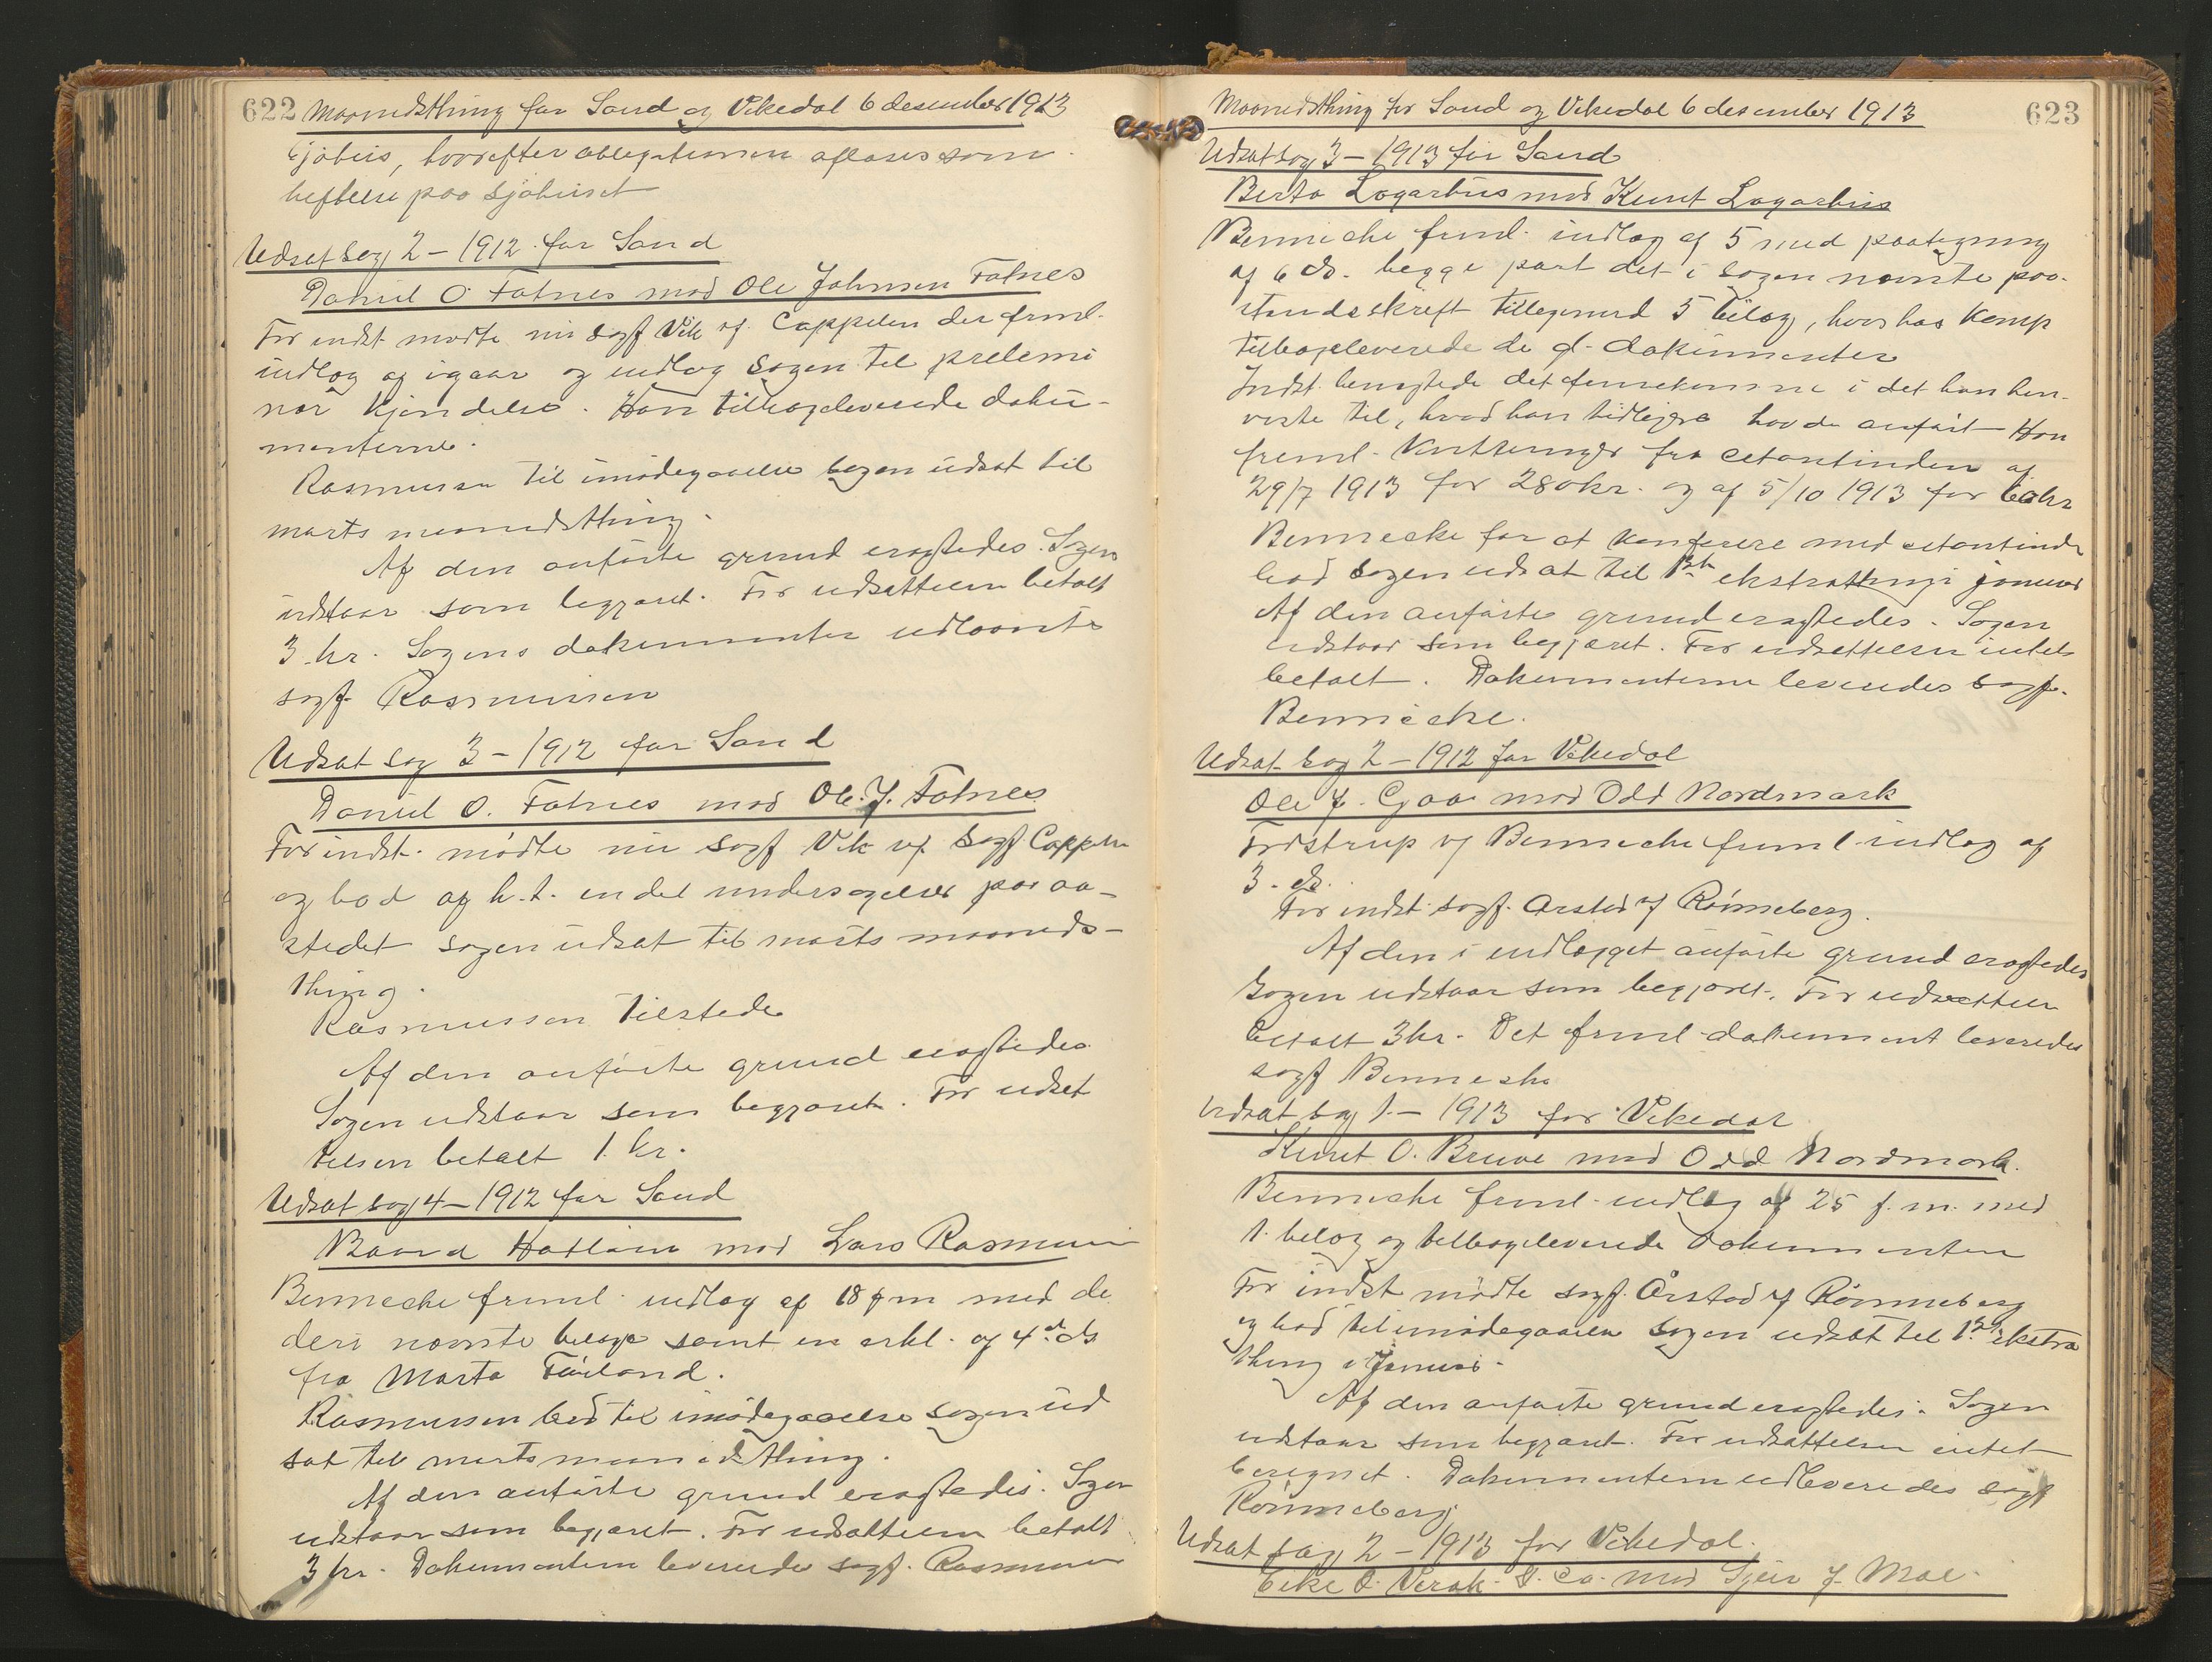 622 Maanedsthing for Sand og Vikedal 6 desember 1913
Sjøhus, hvorefter obligationen aflæses som
heftelse paa sjøhuset
Udsat sag 2 – 1912 for Sand
Daniel O. Fatnes mod Ole Johnsen Fatnes
For indst mødte nu sagf Vik vf. Cappelen der freml.
indlæg af igaar og indlog sagen til prelimi
nær kjendelse. Han tilbageleverede doku-
menterne.
Rasmussen til imødegaaelse sagen udsat til
marts maanedsthing.
Af den anførte grund eragtedes. Sagen
udstaar som begjæret. For udsættelsen betalt
3 kr. Sagens dokumenter udlaante
sagf. Rasmussen
Udsat sag 3 – 1912 for Sand
Daniel O. Fatnes mod Ole. J. Fatnes
For indst. mødte nu sagf Vik vf. Sagf Cappelen
og bad af h. t. en del undersøgelser paa aa-
stedet sagen udsat til marts maaneds-
thing.
Rasmussen tilstede
Af den anførte grund eragtedes
Sagen udstaar som begjæret. For udsæt
telsen betalt 1. kr.
Udsat sag 4 – 1912 for Sand
Baard Hatløin mod Lars Rasmussen
Benneche freml. indlæg af 18 f m med de
deri nævnte bilage samt en erkl. af 4de ds
fra Marta
Rasmussen bad til imødegaaelse sagen ud
sat til marts maanedsthing.
Af den anførte grund eragtedes. Sagen
udstaar som begjæret. For udsættelsen betalt
3 kr. Dokumenterne leveredes sagf. Rasmussen
Maanedsthing for Sand og Vikedal 6 desember 1913 623
Udsat sag 3 – 1913 for Sand
Berta Lagarhus mod Knut Lagarhus
Benneche freml. indlæg af 5 med paategning
af 6 ds. begge part det i sagen nævnte paa-
standsskrift tillegemed 5 bilag, hvorhos komp
tilbageleverede de d. dokumenter
Indst. benegtede det fremkomne i det han hen-
viste til, hvad han tidligere havde anført Han
freml. kvitteringer fra citantinden af
29/7 1913 for 280 kr. og af 5/10 1913 for kr
Benneche for at konferere med citantinden
bad sagen udsat til 1ste ekstrathing i januar
Af den anførte grund eragtedes. Sagen
udstaar som begjæret. For udsættelsen intet
betalt. Dokumenterne leveredes sagf.
Benneche.
Udsat sag 2 – 1912 for Vikedal
Ole J. Gjaa mod Odd Nordmark
Fridstrup vf Benneche freml. indlæg af
3. ds.
For indst. sagf. Arstad vf Rønneberg.
Af den i indlægget anførte grund eragtedes
Sagen udstaar som begjæret. For udsættelsen
betalt 3 kr. Det freml. dokument leveredes
sagf Benneche
Udsat sag 1. – 1913 for Vikedal
Knut O. Bruve mod Odd Nordmark.
Benneche freml. indlæg af 25 f. m. med
1. bilag og tilbageleverede dokumenterne
For indst mødte sagf. Årstad vf Rønneberg
og bad til imødegaaelse sagen udsat til 1ste ekstra
thing i Januar.
Af den anførte grund eragtedes. Sagen
udstaar som begjæret. For udsættelsen intet
beregnet. Dokumenterne udleveredes sagf
Rønneberg
Udsat sag 2 – 1913 for Vikedal.
O. & Co. mod Gjeir J. Moe.